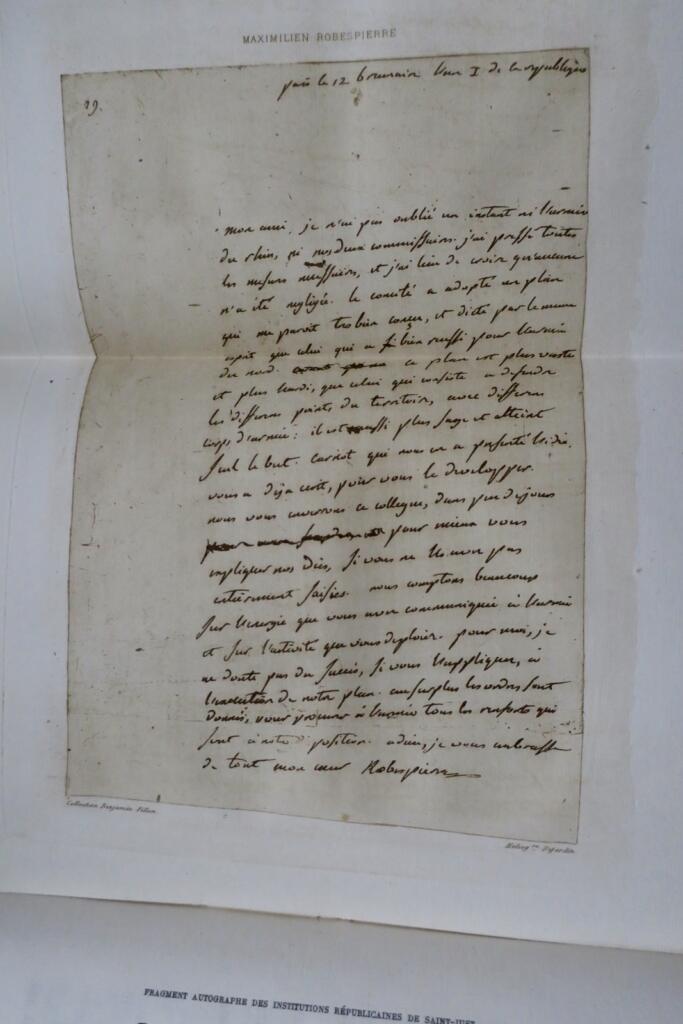 MAXIMILIEN ROBESPIERRE
29.
paris le 12 brumaire l'an I de la republique
mon ami, je n'ai pas oublié un instant ni l'armée
du rhin, ni nos deux commissaires. j'ai pressé toutes
les mesures necessaires, et j'ai lieu de croire qu'aucune
n'a été negligée. le comité a adopté un plan
qui me paroit très bien conçu, et dicté par le meme
esprit que celui qui a si bien reussi pour l'armée
du nord. ce plan est plus vaste
et plus hardi, que celui qui consiste a defendre
les differens points du territoire, avec differens
corps d'armée: il est aussi plus sage et atteint
seul le but. Carnot qui nous en a presenté l'idée
vous a deja ecrit, pour vous le developper.
nous vous enverrons ce collegue, dans peu de jours
pour mieux vous
expliquer nos idées, si vous ne les avez pas
entièrement saisies. nous comptons beaucoup
sur l'energie que vous avez communiquée à l'armée
et sur l'activité que vous deploiez. pour moi, je
ne doute pas du succès, si vous l'appliquez, à
l'execution de notre plan. au surplus les ordres sont
donnés, pour procurer à l'armée tous les renforts qui
sont à notre disposition. adieu, je vous embrasse
de tout mon cœur Robespierre
Collection Benjamin Fillon
Heliog re Dujardin
FRAGMENT AUTOGRAPHE DES INSTITUTIONS RÉPUBLICAINES DE SAINT-JUST